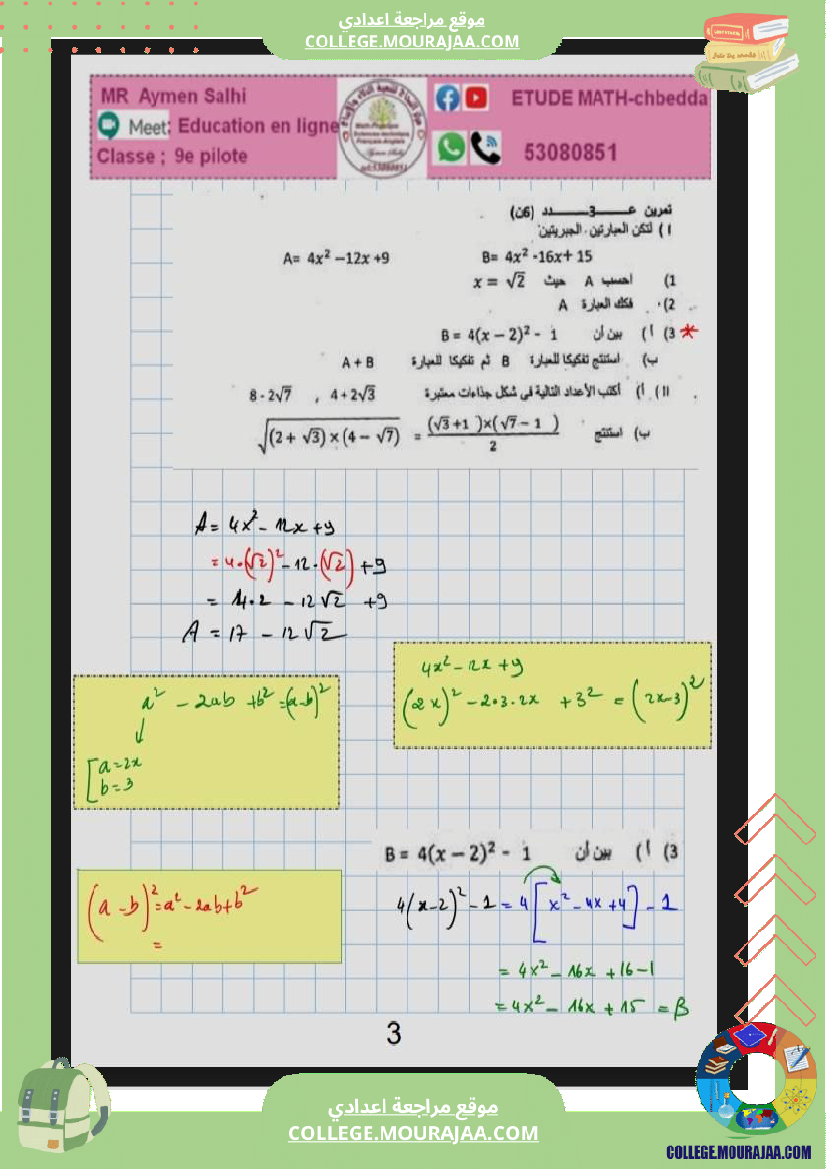 موقع مراجعة اعدادي
COLLEGE.MOURAJAA.COM
MR Aymen Salhi
Meet: Education en ligne
Classe ; 9e pilote
ETUDE MATH-chbedda
53080851
تمرين عـــــ3ـــــدد (6ن)
I) لتكن العبارتين الجبريتين
A= 4x² −12x +9 B= 4x² -16x+ 15
1) احسب A حيث x = √2
2) فكك العبارة A
* 3) أ) بين أن B = 4(x − 2)² - 1
ب) استنتج تفكيكا للعبارة B ثم تفكيكا للعبارة A + B
II) أ) أكتب الأعداد التالية في شكل جذاءات معتبرة 4 + 2√3 , 8 - 2√7
ب) استنتج √((2 + √3) × (4 − √7)) = ((√3 +1 )×(√7 − 1 ))/2
A = 4x² - 12x + 9
= 4·(√2)² - 12·(√2) + 9
= 4·2 - 12√2 + 9
A = 17 - 12√2
4x² - 12x + 9
(2x)² - 2·3·2x + 3² = (2x-3)²
a² - 2ab + b² = (a-b)²
a = 2x
b = 3
3) أ) بين أن B = 4(x − 2)² - 1
(a - b)² = a² - 2ab + b²
=
4(x-2)² - 1 = 4[x² - 4x + 4] - 1
= 4x² - 16x + 16 - 1
= 4x² - 16x + 15 = B
3
موقع مراجعة اعدادي
COLLEGE.MOURAJAA.COM
COLLEGE.MOURAJAA.COM